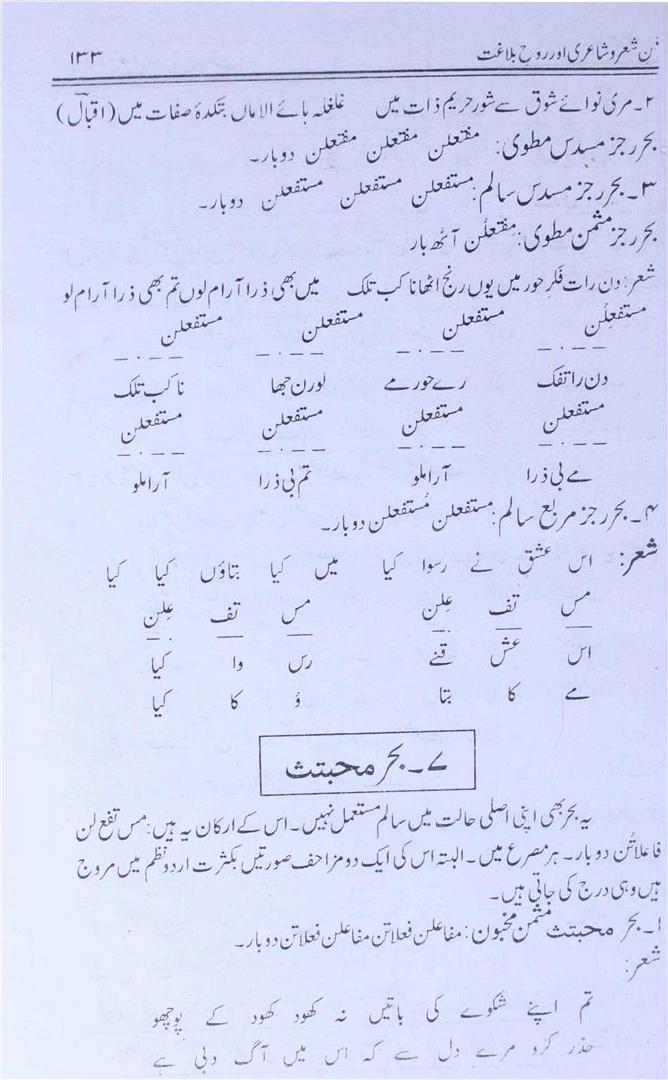 فن شعر و شاعری اور روحِ بلاغت ۱۳۳
۲۔ مری نوائے شوق سے شور حریم ذات میں غلغلہ ہائے الاماں بتکدۂ صفات میں (اقبالؔ)
بحر رجز مسدس مطوی: مفتعلن مفتعلن مفتعلن دوبار۔
۳۔ بحر رجز مسدس سالم: مستفعلن مستفعلن مستفعلن دوبار۔
بحر رجز مثمن مطوی: مفتعلُن آٹھ بار
شعر: دن رات فکرِ حور میں یوں رنج اٹھانا کب تلک میں بھی ذرا آرام لوں تم بھی ذرا آرام لو
مستفعلُن مستفعلن مستفعلن مستفعلن
– – ۰ – – – ۰ – – – ۰ – – – ۰ –
دن را تفک رے حور مے لو رن جھا نا کب تلک
مستفعلن مستفعلن مستفعلن مستفعلن
– – ۰ – – – ۰ – – – ۰ – – – ۰ –
مے بی ذرا آرا ملو تم بی ذرا آرا ملو
۴۔ بحر رجز مربع سالم: مستفعلن مُستفعلن دوبار۔
شعر: اس عشق نے رسوا کیا میں کیا بتاؤں کیا کیا
مس تف عِلن مس تف عِلن
اس عش قنے رس وا کیا
مے کا بتا ؤ کا کیا
۷۔ بحر مجتث
یہ بحر بھی اپنی اصلی حالت میں سالم مستعمل نہیں۔ اس کے ارکان یہ ہیں: مس تفع لن
فاعلاتُن دوبار۔ ہر مصرع میں۔ البتہ اس کی ایک دو مزاحف صورتیں بکثرت اردو نظم میں مروج
ہیں وہی درج کی جاتی ہیں۔
۱۔ بحر مجتث مثمن مخبون: مفاعلن فعلاتن مفاعلن فعلاتن دوبار۔
شعر:
تم اپنے شکوے کی باتیں نہ کھود کھود کے پوچھو
حذر کرو مرے دل سے کہ اس میں آگ دبی ہے